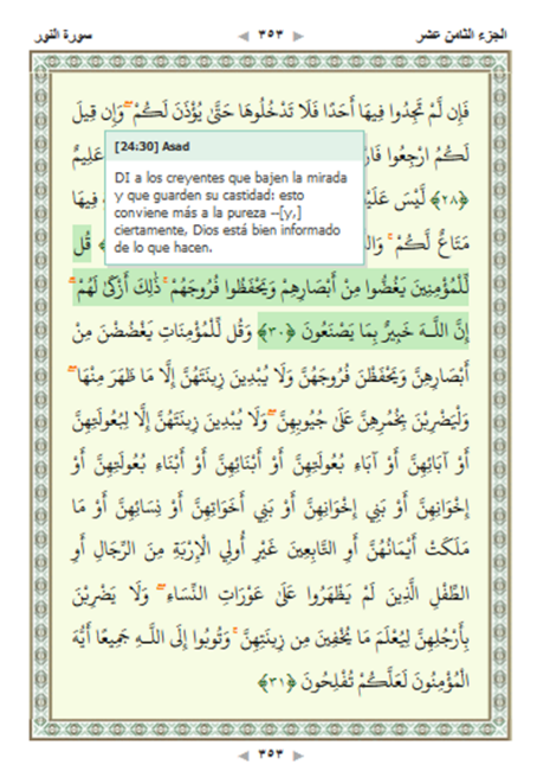 الجزء الثامن عشر ٣٥٣ سورة النور
فَإِن لَّمْ تَجِدُوا فِيهَا أَحَدًا فَلَا تَدْخُلُوهَا حَتَّىٰ يُؤْذَنَ لَكُمْ ۖ وَإِن قِيلَ
لَكُمُ ارْجِعُوا عَلِيمٌ
﴿٢٨﴾ لَّيْسَ فِيهَا
مَتَاعٌ لَّكُمْ ۚ قُل
[24:30] Asad
DI a los creyentes que bajen la mirada
y que guarden su castidad: esto
conviene más a la pureza --[y,]
ciertamente, Dios está bien informado
de lo que hacen.
لِّلْمُؤْمِنِينَ يَغُضُّوا مِنْ أَبْصَارِهِمْ وَيَحْفَظُوا فُرُوجَهُمْ ۚ ذَٰلِكَ أَزْكَىٰ لَهُمْ ۗ
إِنَّ اللَّـهَ خَبِيرٌ بِمَا يَصْنَعُونَ ﴿٣٠﴾ وَقُل لِّلْمُؤْمِنَاتِ يَغْضُضْنَ مِنْ
أَبْصَارِهِنَّ وَيَحْفَظْنَ فُرُوجَهُنَّ وَلَا يُبْدِينَ زِينَتَهُنَّ إِلَّا مَا ظَهَرَ مِنْهَا ۖ
وَلْيَضْرِبْنَ بِخُمُرِهِنَّ عَلَىٰ جُيُوبِهِنَّ ۖ وَلَا يُبْدِينَ زِينَتَهُنَّ إِلَّا لِبُعُولَتِهِنَّ
أَوْ آبَائِهِنَّ أَوْ آبَاءِ بُعُولَتِهِنَّ أَوْ أَبْنَائِهِنَّ أَوْ أَبْنَاءِ بُعُولَتِهِنَّ أَوْ
إِخْوَانِهِنَّ أَوْ بَنِي إِخْوَانِهِنَّ أَوْ بَنِي أَخَوَاتِهِنَّ أَوْ نِسَائِهِنَّ أَوْ مَا
مَلَكَتْ أَيْمَانُهُنَّ أَوِ التَّابِعِينَ غَيْرِ أُولِي الْإِرْبَةِ مِنَ الرِّجَالِ أَوِ
الطِّفْلِ الَّذِينَ لَمْ يَظْهَرُوا عَلَىٰ عَوْرَاتِ النِّسَاءِ ۖ وَلَا يَضْرِبْنَ
بِأَرْجُلِهِنَّ لِيُعْلَمَ مَا يُخْفِينَ مِن زِينَتِهِنَّ ۚ وَتُوبُوا إِلَى اللَّـهِ جَمِيعًا أَيُّهَ
الْمُؤْمِنُونَ لَعَلَّكُمْ تُفْلِحُونَ ﴿٣١﴾
٣٥٣